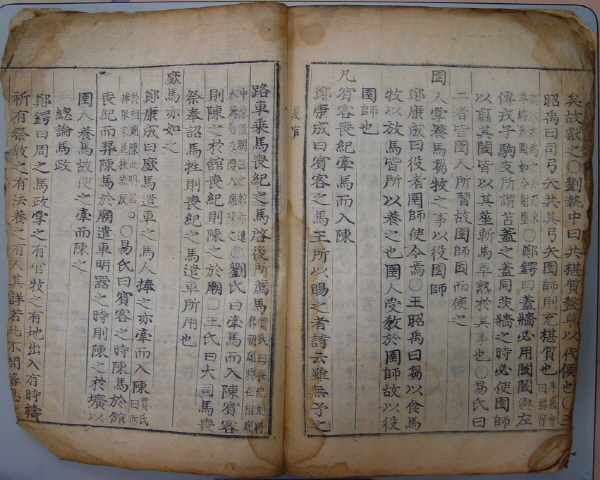 矣故厭之○劉執中曰共椹質盤以代侯也○王
昭禹曰司弓矢共其弓矢圉師則充椹質也
○鄭鍔曰蓋牆必用闔左
傳戎子駒支所謂苫蓋之蓋同茨牆之時必使圉師
以窮其闔皆以其莝斬馬草熟於其事也○易氏曰
二者皆圉人所習故圉師因而使之
圉人掌養馬芻牧之事以役圉師
鄭康成曰役者圉師使令焉○王昭禹曰芻以食馬
牧以放馬皆所以養之也圉人受教於圉師故以役
圉師也
凡賓客喪紀牽馬而入陳
鄭康成曰賓客之馬王所以賜之者詩云雖無予之
路車乗馬喪紀之馬啓後所薦馬
○劉氏曰牽馬而入陳賓客
則陳之於館喪紀則陳之於廟○王氏曰大司馬喪
祭奉詔馬牲則喪紀之馬遣車所用也
廞馬亦如之
鄭康成曰廞馬遣車之馬人捧之亦牽而入陳賈氏曰亦
○易氏曰賓客之時陳馬於館
喪紀而葬陳馬於廟遣車明器之時則陳之於壙以
圉人養馬故使之牽而陳之
總論馬政
鄭鍔曰周之馬政掌之有官牧之有地出入有時禱
祈有祭牧之有法養之有人其詳若此不聞